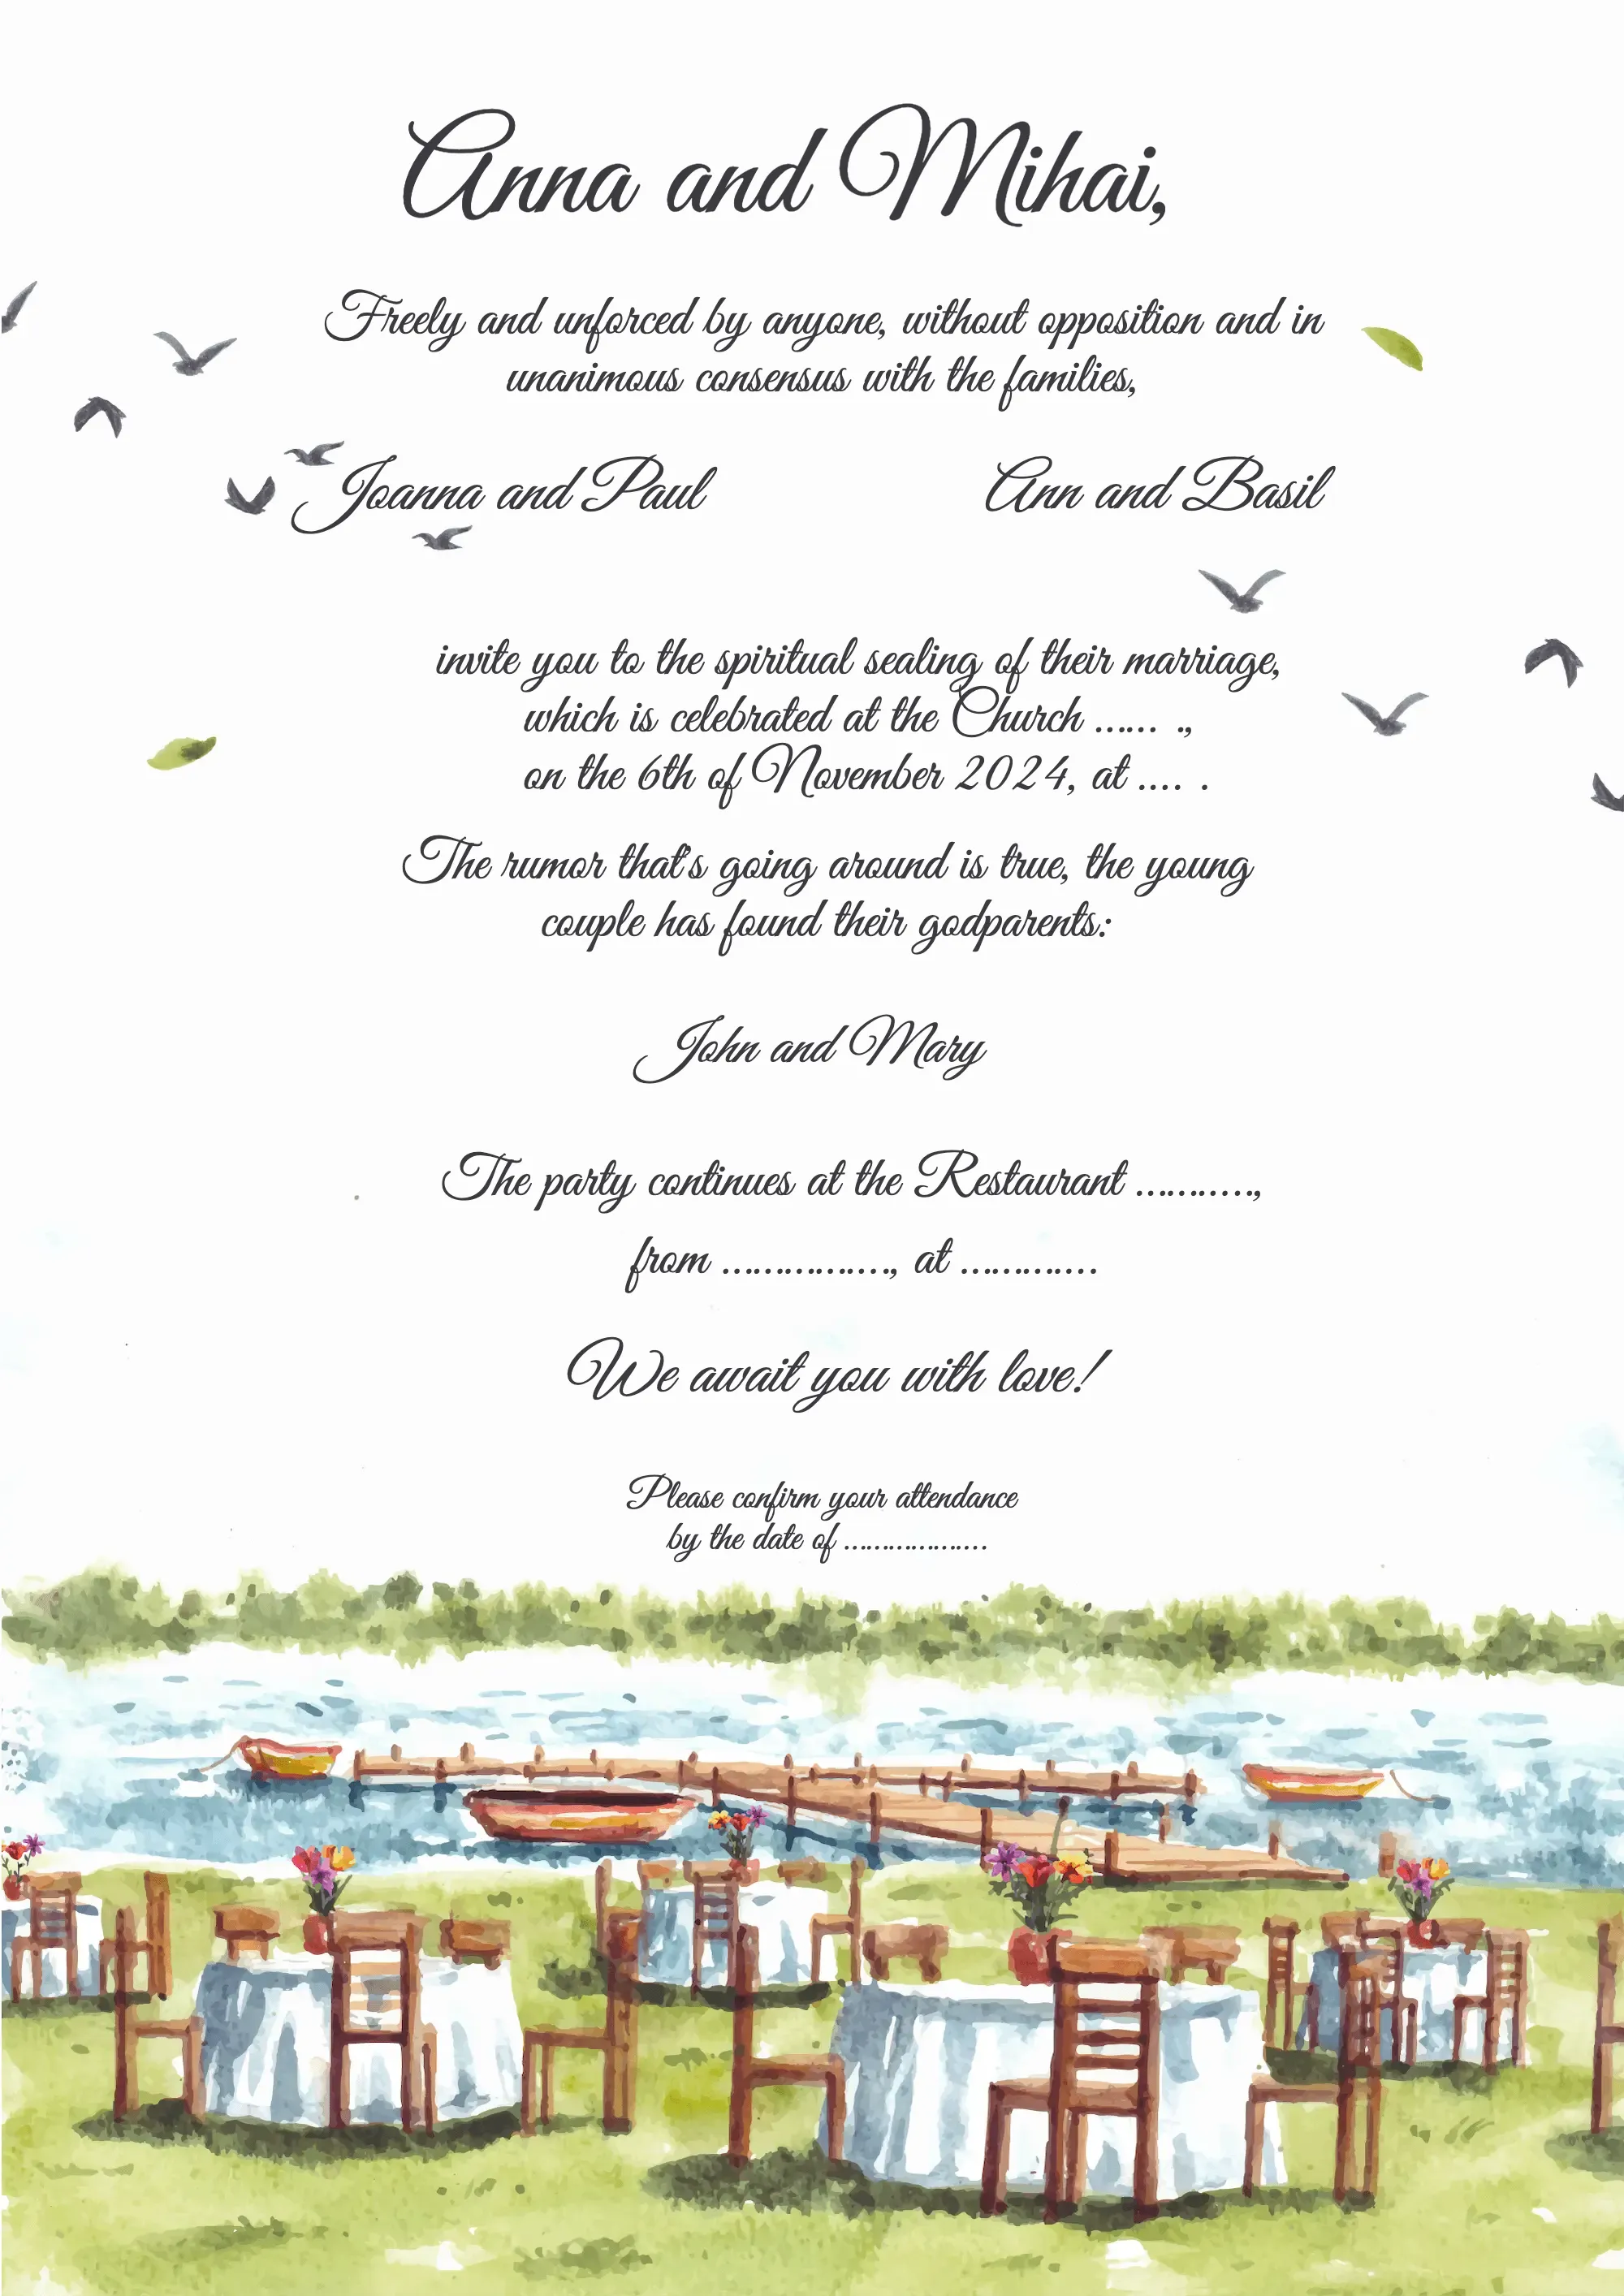 Anna and Mihai,
Freely and unforced by anyone, without opposition and in
unanimous consensus with the families,
Joanna and Paul
Ann and Basil
invite you to the spiritual sealing of their marriage,
which is celebrated at the Church ...... .,
on the 6th of November 2024, at .... .
The rumor that's going around is true, the young
couple has found their godparents:
John and Mary
The party continues at the Restaurant ...........,
from ................, at .............
We await you with love!
Please confirm your attendance
by the date of ..................